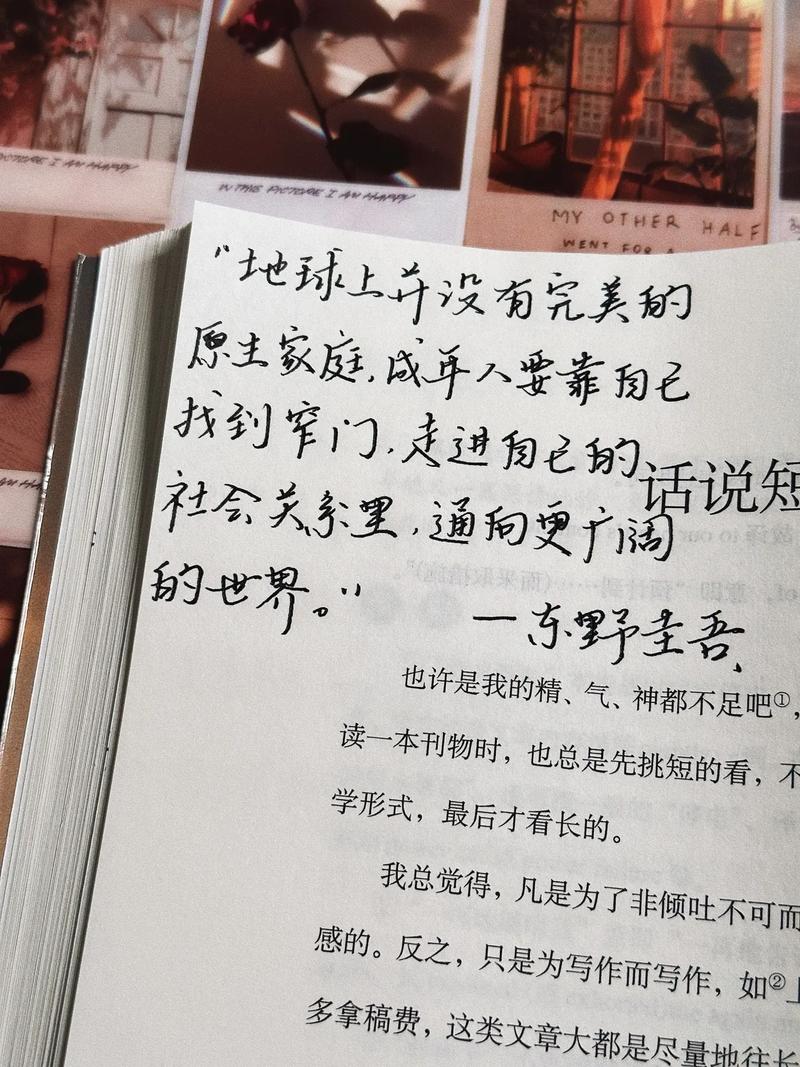 PICTURE I AM HAPPY
IN THIS PICTURE I AM HAPPY
MY OTHER HALF
WENT FOR A
"地球上并没有完美的
原生家庭,成年人要靠自己
找到窄门,走进自己的
社会关系里,通向更广阔
的世界。"
—东野圭吾
话说短
也许是我的精、气、神都不足吧①,
读一本刊物时,也总是先挑短的看,不
学形式,最后才看长的。
我总觉得,凡是为了非倾吐不可而
感的。反之,只是为写作而写作,如②上
多拿稿费,这类文章大都是尽量地往长